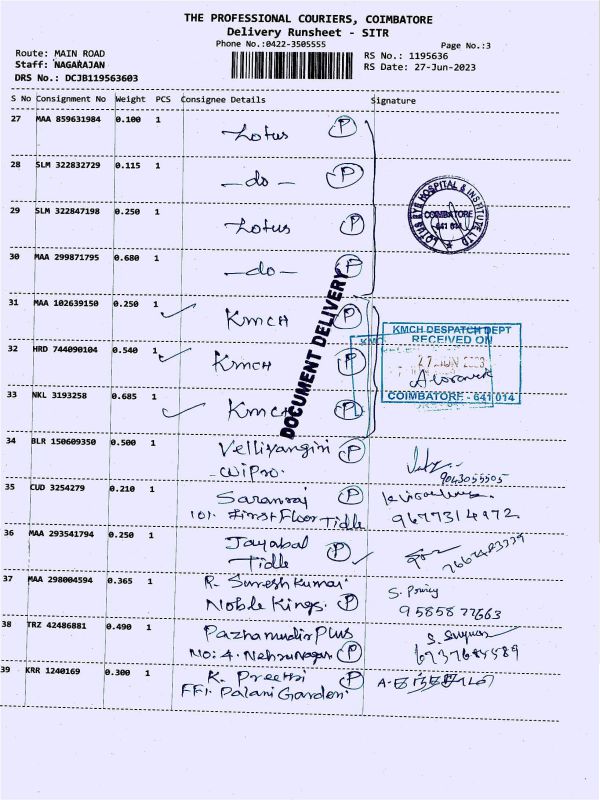 THE PROFESSIONAL COURIERS, COIMBATORE
Delivery Runsheet - SITR
Phone No.:0422-3505555
Page No.:3
Route: MAIN ROAD
RS No.: 1195636
Staff: NAGARAJAN
RS Date: 27-Jun-2023
DRS No.: DCJB119563603
S No Consignment No Weight PCS Consignee Details Signature
27 MAA 859631984 0.100 1 Lotus P
28 SLM 322832729 0.115 1 -do- P
LOTUS EYE HOSPITAL & INSTITUTE LTD
COIMBATORE
641 014
29 SLM 322847198 0.250 1 Lotus P
30 MAA 299871795 0.680 1 -do- P
DOCUMENT DELIVERY
31 MAA 102639150 0.250 1 KMCH P
KMCH DESPATCH DEPT
RECEIVED ON
27 JUN
COIMBATORE - 641 014
32 HRD 744090104 0.540 1 KMCH P
33 NKL 3193258 0.685 1 KMCH P
34 BLR 150609350 0.500 1 Velliyangiri P
Wipro.
9043055505
35 CUD 3254279 0.210 1 Saranraj P
101. First Floor Tidle 9677314972
36 MAA 293541794 0.250 1 Jayabal P
Tidle
37 MAA 298004594 0.365 1 R. Sureshkumar
Noble Kings. P
38 TRZ 42486881 0.490 1 Pazhamudir Plus
No: 4. Nehrunagar P
39 KRR 1240169 0.300 1 K. Preethi P
FF1. Palani Garden